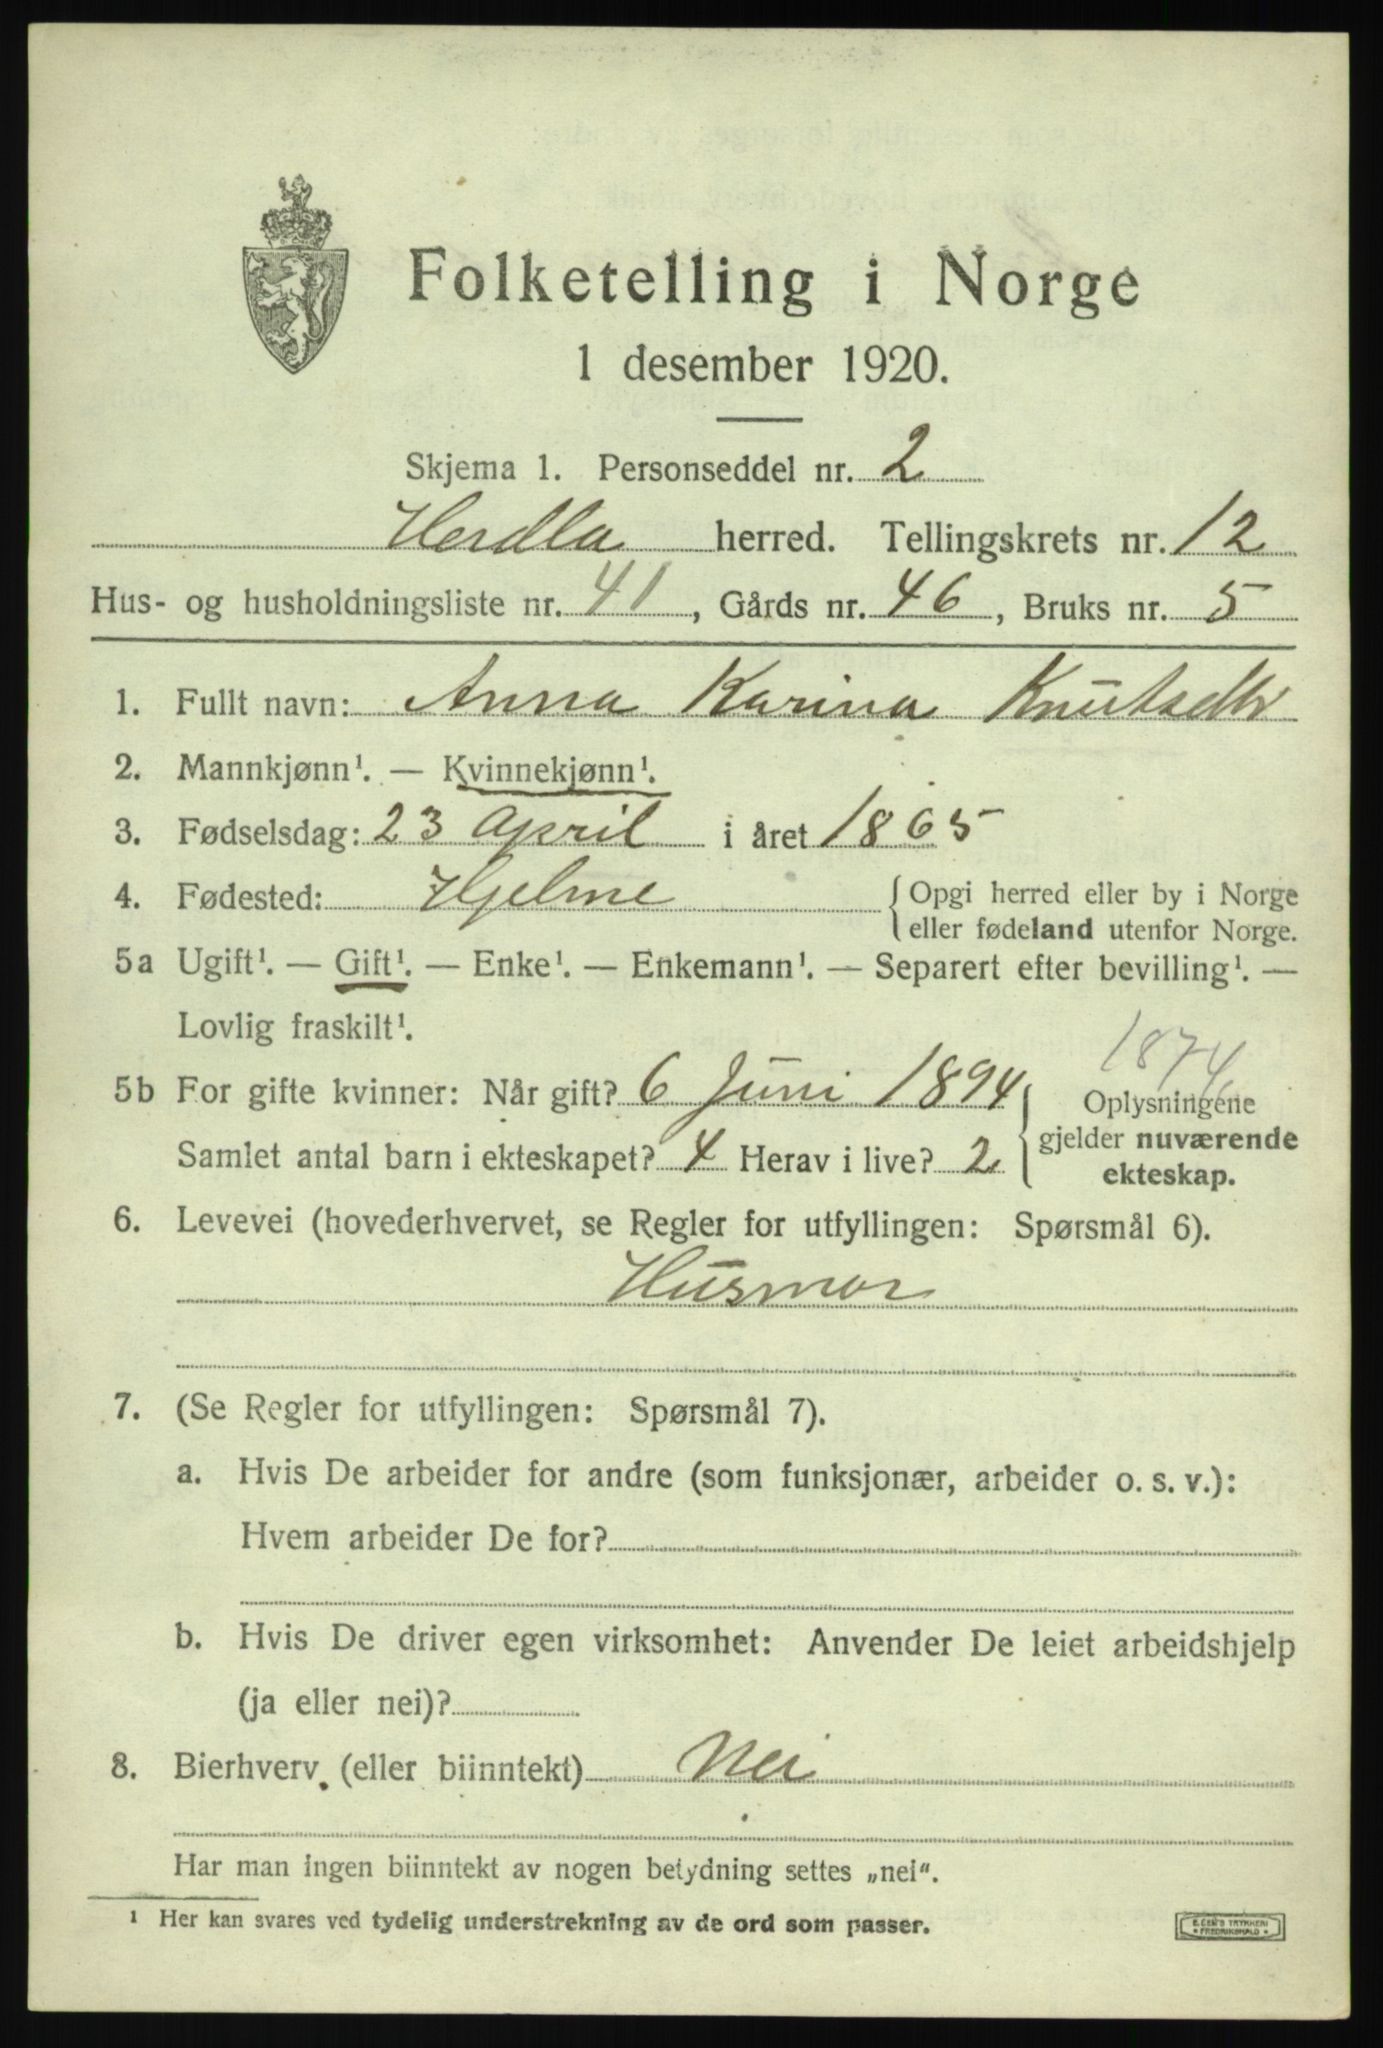 Folketelling i Norge
1 desember 1920.
Skjema 1. Personseddel nr. 2
Herdla herred. Tellingskrets nr. 12
Hus- og husholdningsliste nr. 41, Gårds nr. 46, Bruks nr. 5
1. Fullt navn: Anna Karina Knutsdtr
2. Mannkjønn¹. — Kvinnekjønn¹.
3. Fødselsdag: 23 April i året 1865
4. Fødested: Hjelme { Opgi herred eller by i Norge
eller fødeland utenfor Norge.
5a Ugift¹. — Gift¹. — Enke¹. — Enkemann¹. — Separert efter bevilling¹. —
Lovlig fraskilt¹.
1874
5b For gifte kvinner: Når gift? 6 Juni 1894 { Oplysningene
gjelder nuværende
Samlet antal barn i ekteskapet? 4 Herav i live? 2
ekteskap.
6. Levevei (hovederhvervet, se Regler for utfyllingen: Spørsmål 6).
Husmor
7. (Se Regler for utfyllingen: Spørsmål 7).
a. Hvis De arbeider for andre (som funksjonær, arbeider o. s. v.):
Hvem arbeider De for?
b. Hvis De driver egen virksomhet: Anvender De leiet arbeidshjelp
(ja eller nei)?
8. Bierhverv (eller biinntekt) Nei
Har man ingen biinntekt av nogen betydning settes „nei“.
¹ Her kan svares ved tydelig understrekning av de ord som passer.
E. SEM'S TRYKKERI
• FREDRIKSHALD •